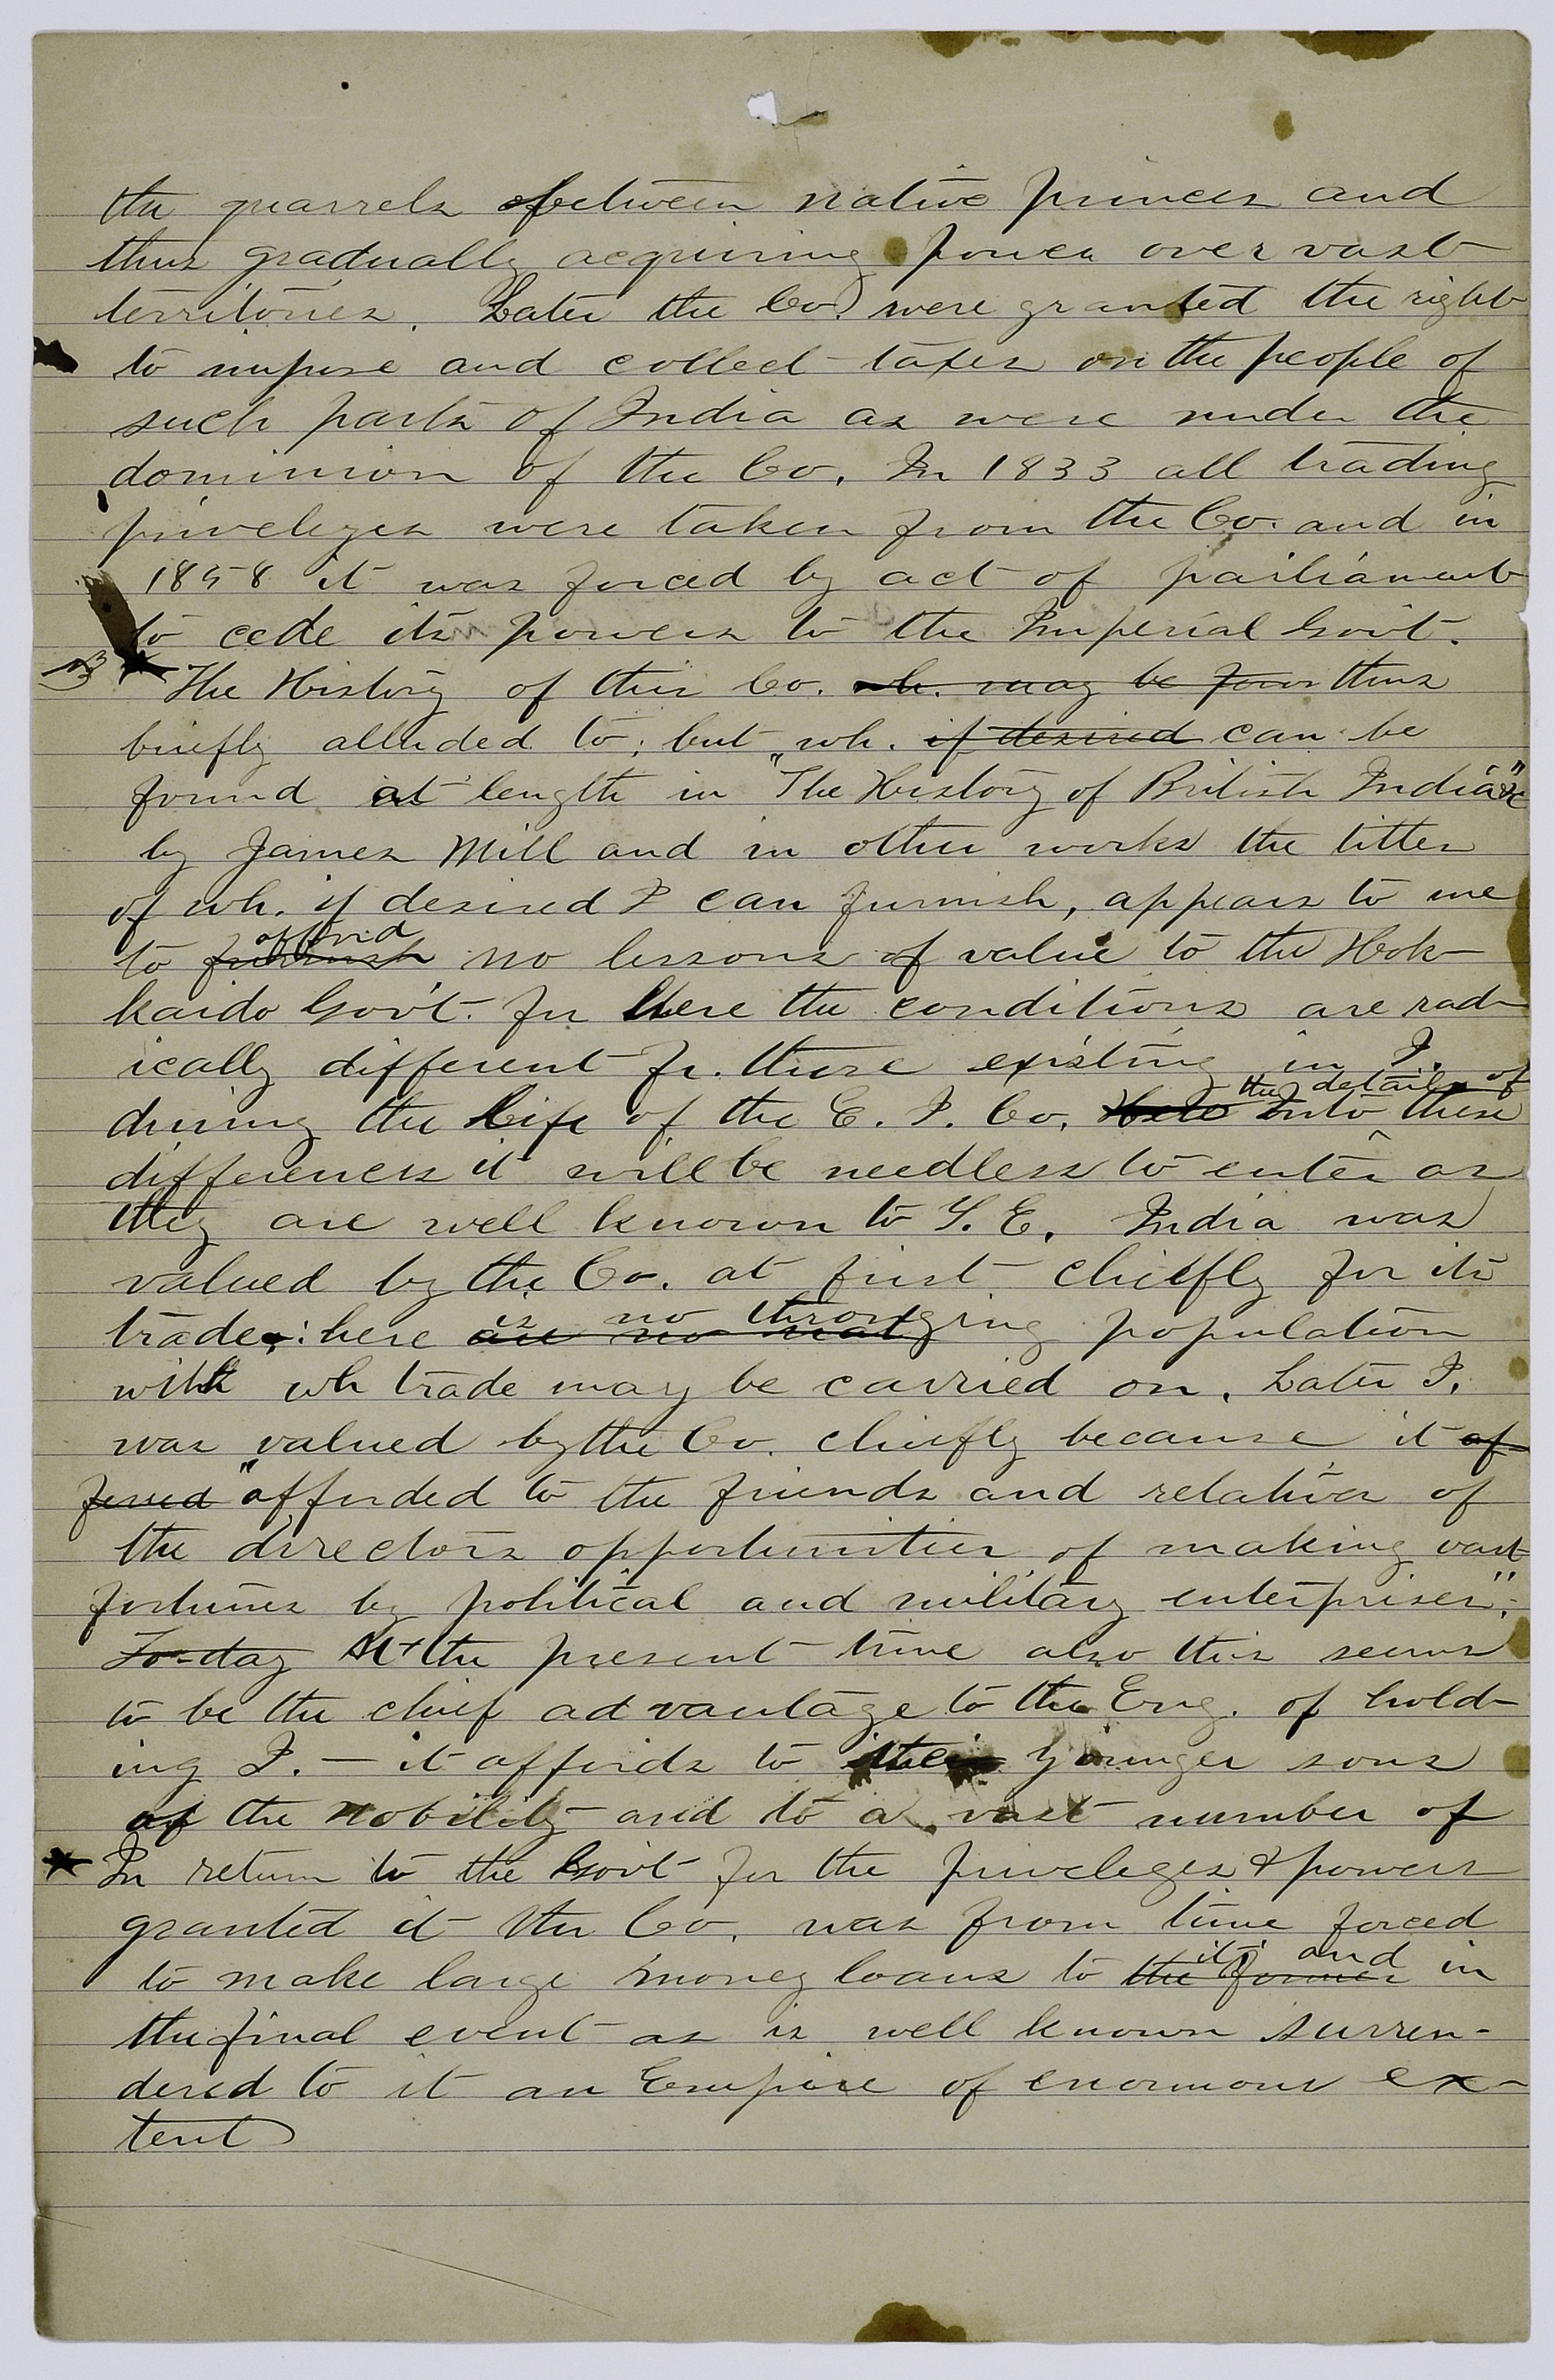 the quarrels between native princes and
thus gradually acquiring power over vast
territories. Later the Co. were granted the right
to impose and collect taxes on the people of
such parts of India as were under the
dominion of the Co. In 1833 all trading
priveleges were taken from the Co. and in
1858 it was forced by act of parliament
to cede its powers to the Imperial Gov't.
* The History of this Co. wh. may be foun thus
briefly alluded to; but wh. if desired can be
found at length in "The History of British India"
by James Mill and in other works the titles
of wh. if desired I can furnish, appears to me
afford
to furnish no lessons of value to the Hok-
kaido Gov't. for here the conditions are rad-
ically different fr. those existing in I.
the details of
during the life of the E. I. Co. Into these
differences it will be needless to enter as
they are well known to Y. E. India was
valued by the Co. at first chiefly for its
is no thronging
trade: here are no great population
with wh trade may be carried on. Later I.
was valued by the Co. chiefly because it of
fered "afforded to the friends and relatives of
the directors opportunities of making vast
fortunes by political and military enterprises".
To-day At the present time also this seems
to be the chief advantage to the Eng. of hold-
ing I. — it affords to their younger sons
of the nobility and to a vast number of
* In return to the Gov't for the priveleges & powers
granted it the Co. was from time forced
it; and
to make large money loans to the former in
the final event as is well known surren-
dered to it an Empire of enormous ex-
tent